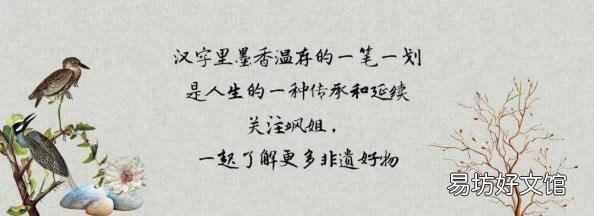 汉字里墨香温存的一笔一划
是人生的一种传承和延续
关注飒姐，
一起了解更多非遗好物
易坊好文馆